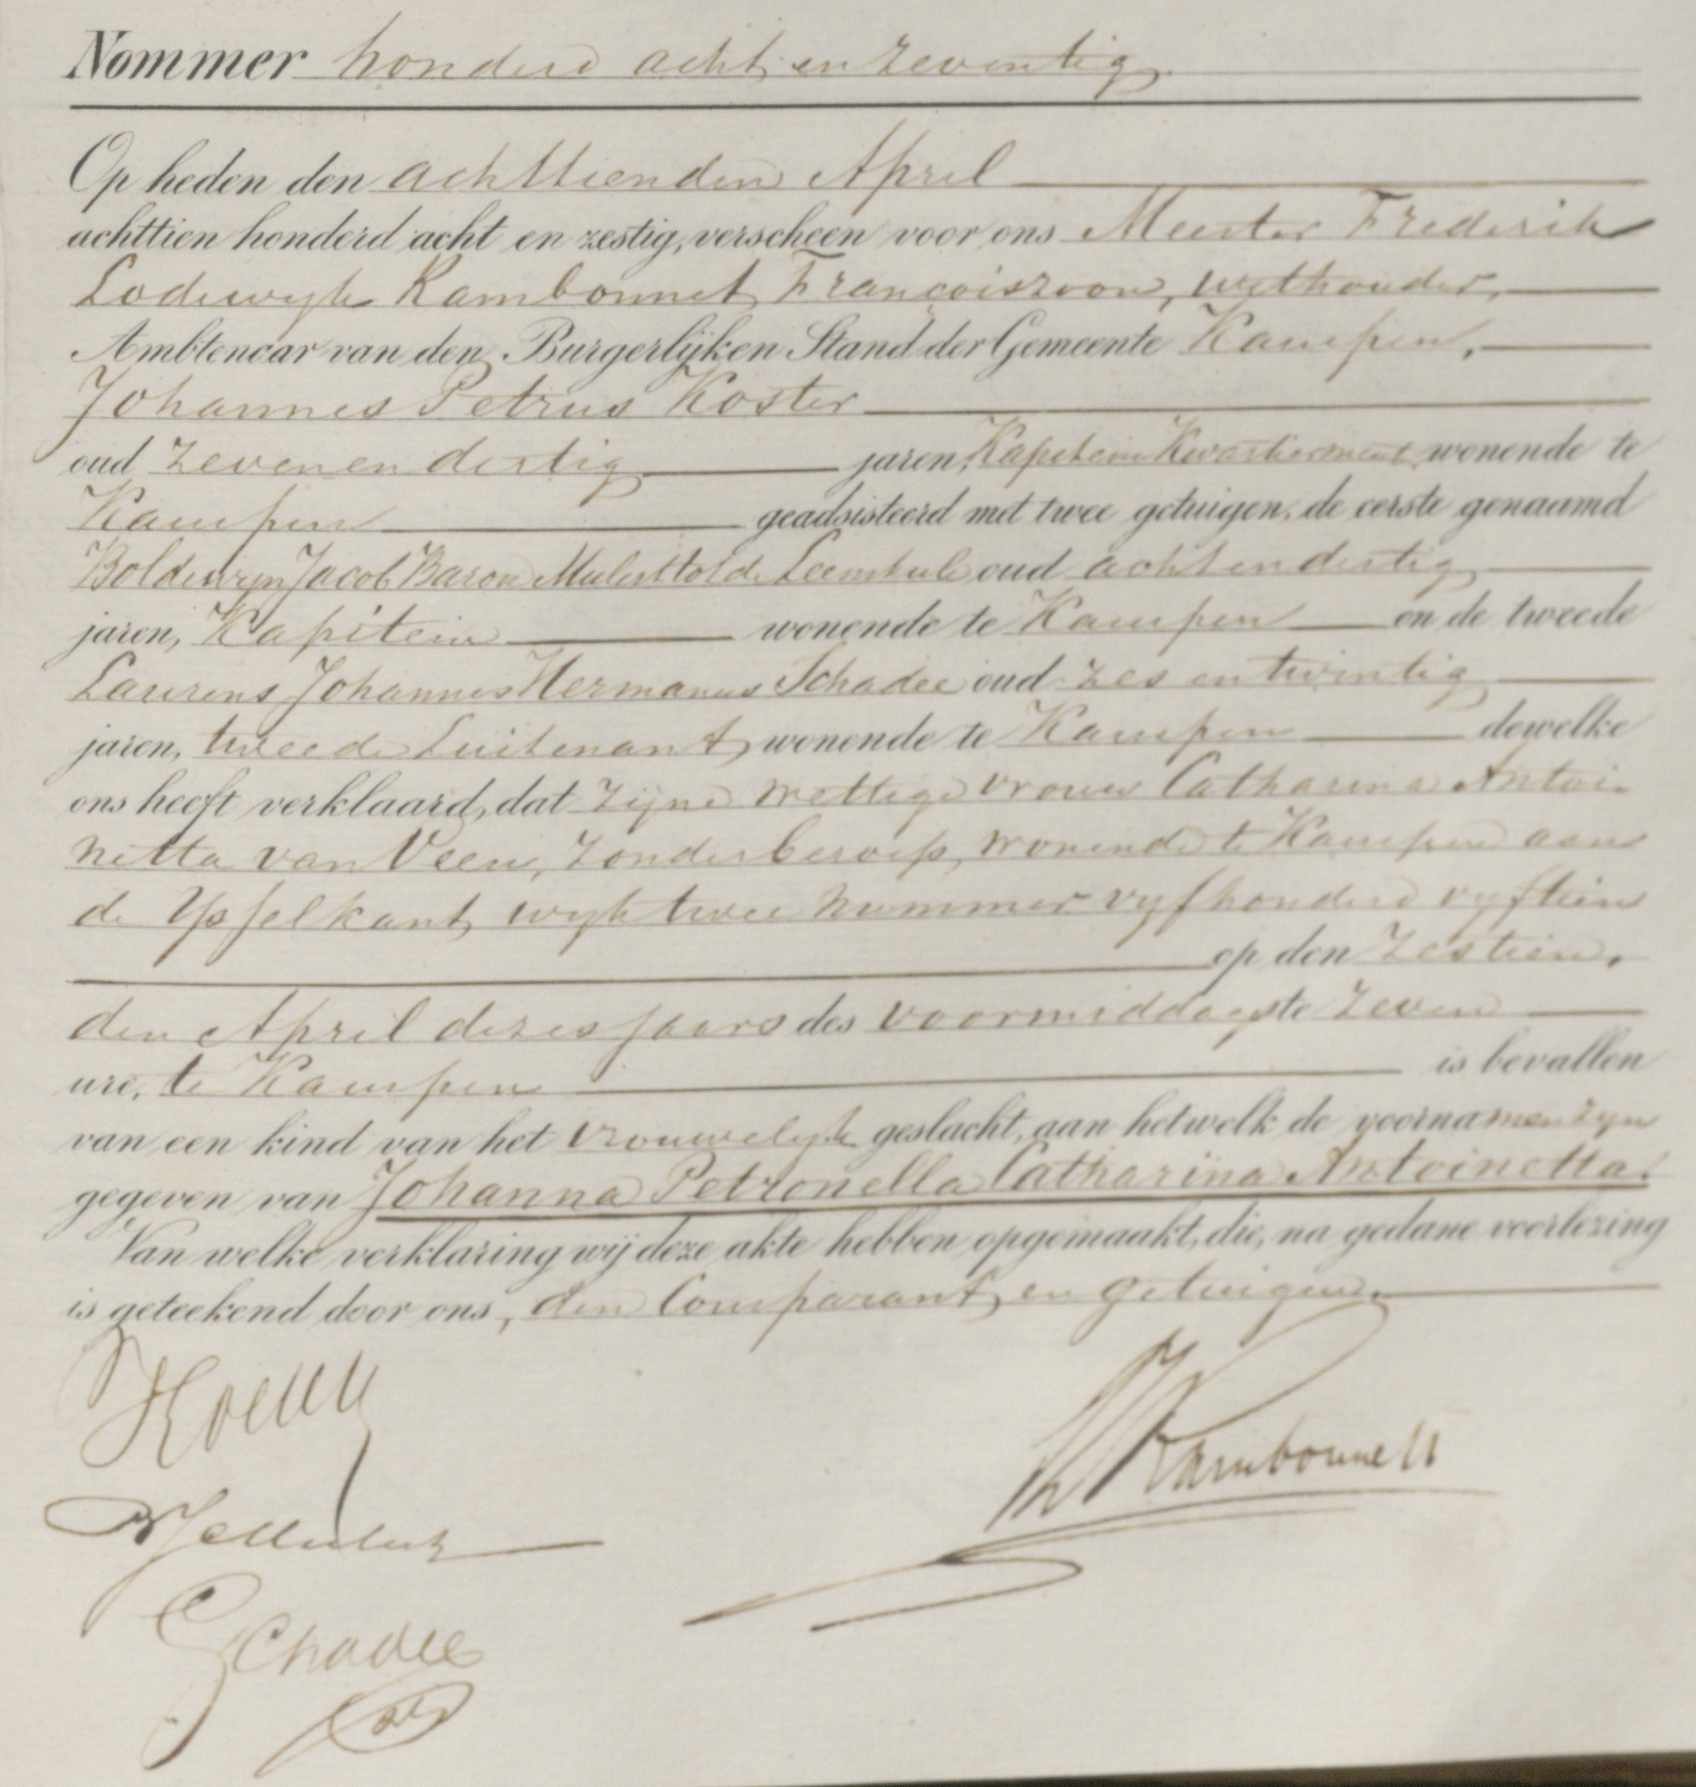 Nommer honderd acht en zeventig
Op heden den achttienden April
achttien honderd acht en zestig, verscheen voor ons Meester Frederik
Lodewyk Rambonnet Françoiszoon, wethouder,
Ambtenaar van den Burgerlijken Stand der Gemeente Kampen,
Johannes Petrus Koster
oud zeven en dertig jaren, Kapitein Kwartiermeester wonende te
Kampen geadsisteerd met twee getuigen, de eerste genaamd
Boldewyn Jacob Baron Mulert tot de Leemkule oud acht en dertig
jaren, Kapitein wonende te Kampen en de tweede
Laurens Johannes Hermanus Schadee oud zes en twintig
jaren, tweede Luitenant, wonende te Kampen dewelke
ons heeft verklaard, dat zijne wettige vrouw Catharina Antoi-
netta van Veen, zonder beroep, wonende te Kampen aan
de Ysselkant, wyk twee nummer vyfhonderd vyftien
op den zestien-
den April dezes jaars des voormiddags te zeven
ure, te Kampen is bevallen
van een kind van het vrouwelyk geslacht, aan hetwelk de voornamen zyn
gegeven van Johanna Petronella Catharina Antoinetta.
Van welke verklaring wij deze akte hebben opgemaakt, die, na gedane voorlezing
is geteekend door ons, den Comparant, en getuigen.
Rambonnet
Schadee